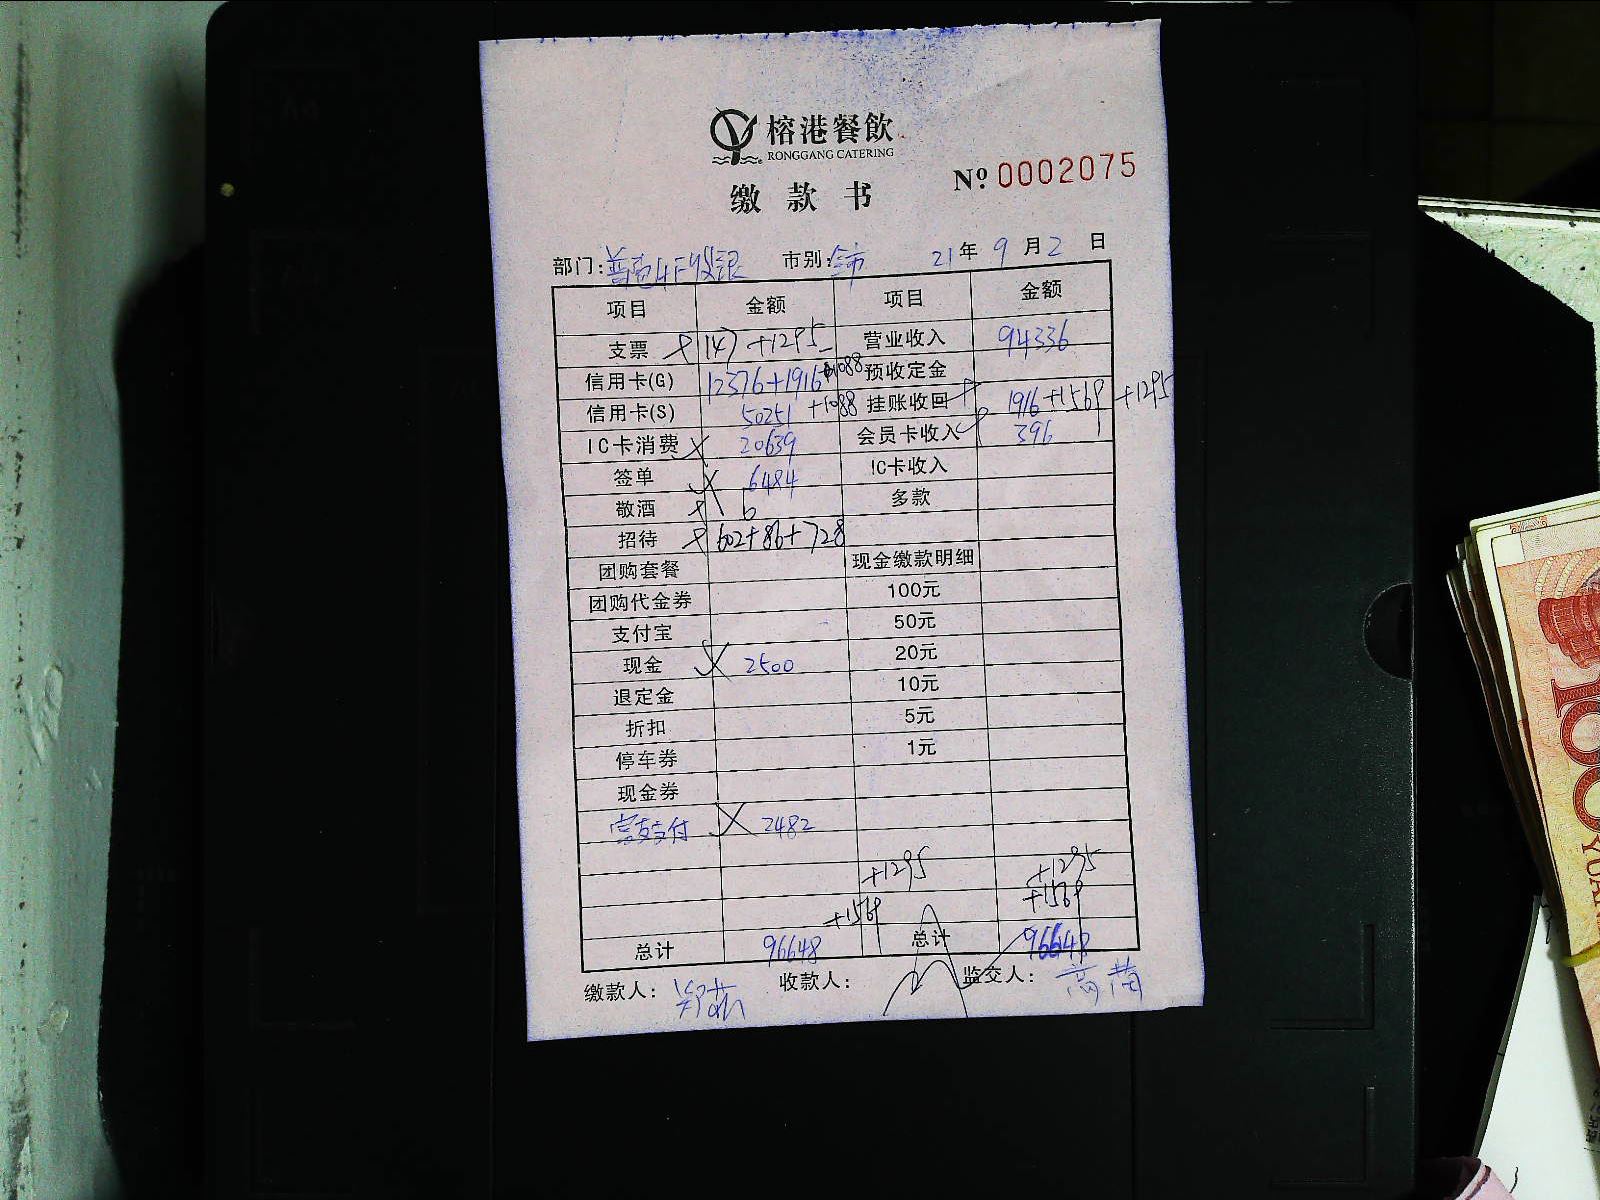 榕港餐飲
RONGGANG CATERING
缴款书 Nº 0002075
部门: 4F收银 市别: 全市 21年 9月2日
项目 金额 项目 金额
支票 147 +1295 营业收入 94336
信用卡(G) 12376+1916 +1088 预收定金
信用卡(S) 50251 +1088 挂账收回 1916+1569 +1295
IC卡消费 20639 会员卡收入 396
签单 6484 IC卡收入
敬酒 6 多款
招待 602+86+728
团购套餐 现金缴款明细
团购代金券 100元
支付宝 50元
现金 2500 20元
退定金 10元
折扣 5元
停车券 1元
现金券
支付 2482
+1295 +1295
+1569 +1569
总计 96648 总计 96648
缴款人: 收款人: 监交人: 高茜
100
YUAN